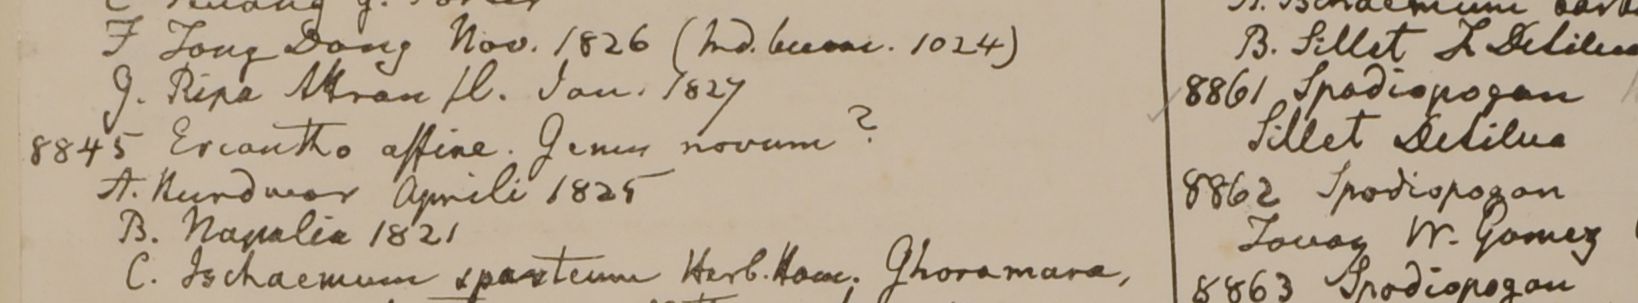 F Tong Dong Nov. 1826 ( 1024)
G. Ripa fl. Jan. 1827
8845 Eriantho affine. Genus novum?
A. Hurdwar Aprili 1825
B. Napalia 1821
C. Ischaemum sparteum Herb. Ham. Ghoramara,
A. Ischaemum
B. Sillet F. De Silva
8861 Spodiopogon
Sillet De Silva
8862 Spodiopogon
Tavoy W. Gomez
8863 Spodiopogon